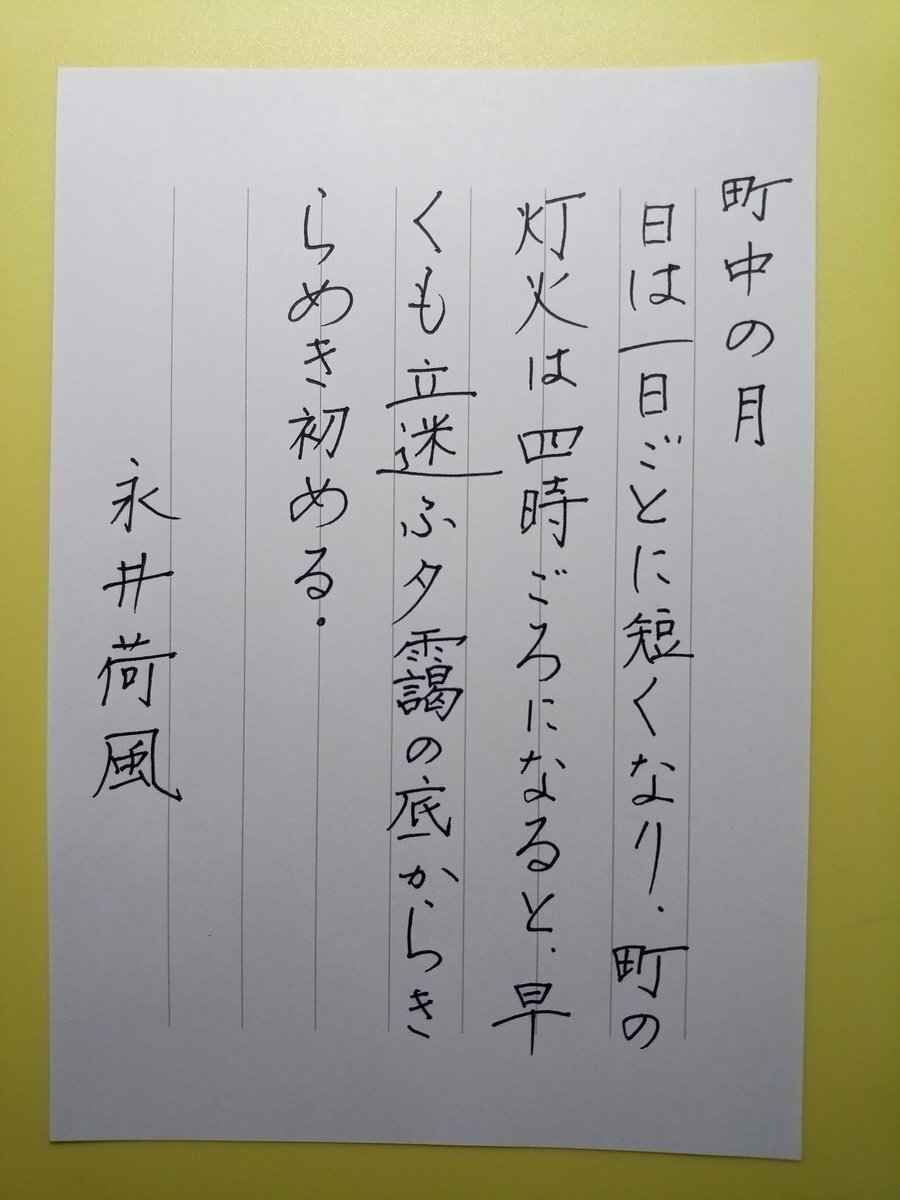 町中の月
日は一日ごとに短くなり.町の
灯火は四時ごろになると.早
くも立迷ふ夕靄の底からき
らめき初める.
永井荷風